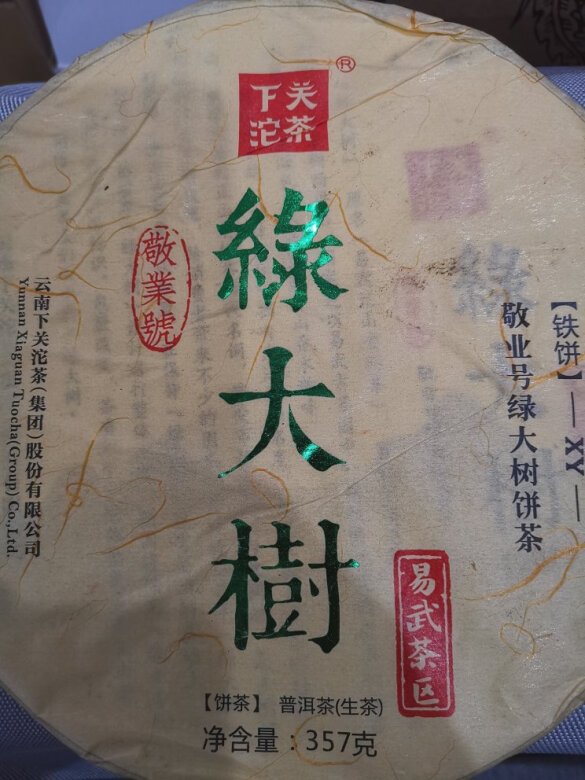 下关
沱茶
®
綠大樹
敬業號
云南下关沱茶(集团)股份有限公司
Yunnan Xiaguan Tuocha(Group) Co.,Ltd.
【铁饼】—XY—
敬业号绿大树饼茶
易武茶区
【饼茶】 普洱茶(生茶)
净含量：357克